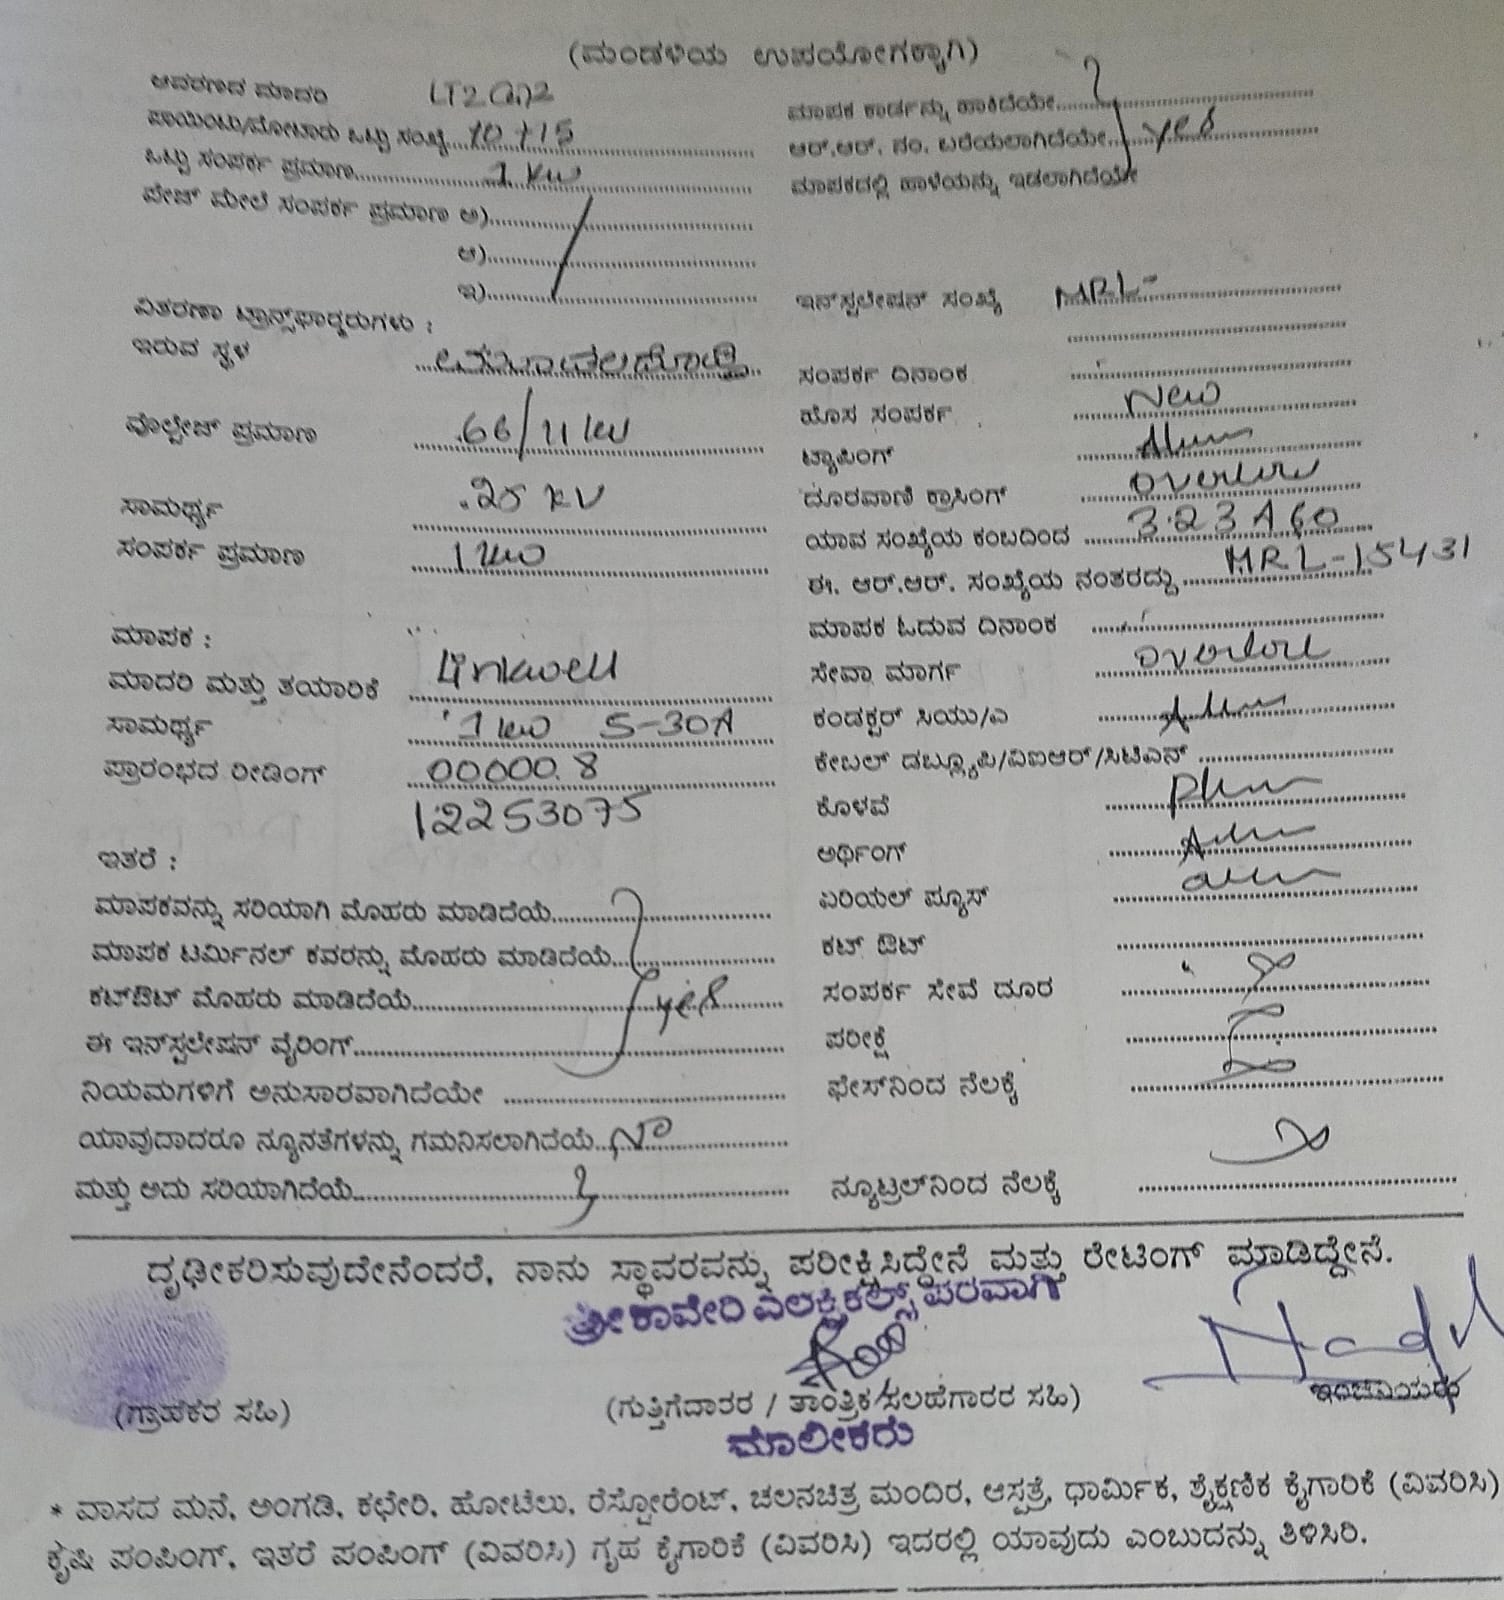 (ಮಂಡಳಿಯ ಉಪಯೋಗಕ್ಕಾಗಿ)
ಆವರಣದ ಮಾದರಿ LT2(a)2
ಪಾಯಿಂಟು/ಮೋಟಾರು ಒಟ್ಟು ಸಂಖ್ಯೆ 10+15
ಒಟ್ಟು ಸಂಪರ್ಕ ಪ್ರಮಾಣ 1 kw
ಪೇಜ್ ಮೇಲೆ ಸಂಪರ್ಕ ಪ್ರಮಾಣ ಅ)
ಆ)
ಇ)
ವಿತರಣಾ ಟ್ರಾನ್ಸ್‌ಫಾರ್‍ಮರುಗಳು :
ಇರುವ ಸ್ಥಳ
ವೊಲ್ಟೇಜ್ ಪ್ರಮಾಣ 66/11 kv
ಸಾಮರ್ಥ್ಯ 25 kv
ಸಂಪರ್ಕ ಪ್ರಮಾಣ 1 kw
ಮಾಪಕ :
ಮಾದರಿ ಮತ್ತು ತಯಾರಿಕೆ Linkwell
ಸಾಮರ್ಥ್ಯ 1 kw 5-30A
ಪ್ರಾರಂಭದ ರೀಡಿಂಗ್ 00000.8
12253075
ಇತರೆ :
ಮಾಪಕವನ್ನು ಸರಿಯಾಗಿ ಮೊಹರು ಮಾಡಿದೆಯೆ
ಮಾಪಕ ಟರ್ಮಿನಲ್ ಕವರನ್ನು ಮೊಹರು ಮಾಡಿದೆಯೆ
ಕಟ್‌ಔಟ್ ಮೊಹರು ಮಾಡಿದೆಯೆ yes
ಈ ಇನ್‌ಸ್ಟಲೇಷನ್ ವೈರಿಂಗ್
ನಿಯಮಗಳಿಗೆ ಅನುಸಾರವಾಗಿದೆಯೇ
ಯಾವುದಾದರೂ ನ್ಯೂನತೆಗಳನ್ನು ಗಮನಿಸಲಾಗಿದೆಯೆ No
ಮತ್ತು ಅದು ಸರಿಯಾಗಿದೆಯೆ
ಮಾಪಕ ಕಾರ್ಡನ್ನು ಹಾಕಿದೆಯೇ
ಆರ್.ಆರ್. ನಂ. ಬರೆಯಲಾಗಿದೆಯೇ yes
ಮಾಪಕದಲ್ಲಿ ಹಾಳೆಯನ್ನು ಇಡಲಾಗಿದೆಯೇ
ಇನ್‌ಸ್ಟಲೇಷನ್ ಸಂಖ್ಯೆ MRL-
ಸಂಪರ್ಕ ದಿನಾಂಕ
ಹೊಸ ಸಂಪರ್ಕ New
ಟ್ಯಾಪಿಂಗ್
ದೂರವಾಣಿ ಕ್ರಾಸಿಂಗ್
ಯಾವ ಸಂಖ್ಯೆಯ ಕಂಬದಿಂದ
ಈ. ಆರ್.ಆರ್. ಸಂಖ್ಯೆಯ ನಂತರದ್ದು MRL-15431
ಮಾಪಕ ಓದುವ ದಿನಾಂಕ
ಸೇವಾ ಮಾರ್ಗ
ಕಂಡಕ್ಟರ್ ಸಿಯು/ಎ
ಕೇಬಲ್ ಡಬ್ಲ್ಯೂಪಿ/ವಿಐಆರ್/ಸಿಟಿಎಸ್
ಕೊಳವೆ
ಅರ್ಥಿಂಗ್
ಏರಿಯಲ್ ಪ್ಯೂಸ್
ಕಟ್ ಔಟ್
ಸಂಪರ್ಕ ಸೇವೆ ದೂರ
ಪರೀಕ್ಷೆ
ಫೇಸ್‌ನಿಂದ ನೆಲಕ್ಕೆ
ನ್ಯೂಟ್ರಲ್‌ನಿಂದ ನೆಲಕ್ಕೆ
ದೃಢೀಕರಿಸುವುದೇನೆಂದರೆ, ನಾನು ಸ್ಥಾವರವನ್ನು ಪರೀಕ್ಷಿಸಿದ್ದೇನೆ ಮತ್ತು ರೇಟಿಂಗ್ ಮಾಡಿದ್ದೇನೆ.
ಶ್ರೀ ಕಾವೇರಿ ಎಲಕ್ಟ್ರಿಕಲ್ಸ್ ಪರವಾಗಿ
(ಗ್ರಾಹಕರ ಸಹಿ) (ಗುತ್ತಿಗೆದಾರರ / ತಾಂತ್ರಿಕ ಸಲಹೆಗಾರರ ಸಹಿ) ಇಂಜಿನಿಯರು
ಮಾಲೀಕರು
* ವಾಸದ ಮನೆ, ಅಂಗಡಿ, ಕಛೇರಿ, ಹೋಟೆಲು, ರೆಸ್ಟೋರೆಂಟ್, ಚಲನಚಿತ್ರ ಮಂದಿರ, ಆಸ್ಪತ್ರೆ, ಧಾರ್ಮಿಕ, ಶೈಕ್ಷಣಿಕ ಕೈಗಾರಿಕೆ (ವಿವರಿಸಿ)
ಕೃಷಿ ಪಂಪಿಂಗ್, ಇತರೆ ಪಂಪಿಂಗ್ (ವಿವರಿಸಿ) ಗೃಹ ಕೈಗಾರಿಕೆ (ವಿವರಿಸಿ) ಇದರಲ್ಲಿ ಯಾವುದು ಎಂಬುದನ್ನು ತಿಳಿಸಿರಿ.